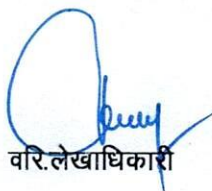 वरि.लेखाधिकारी